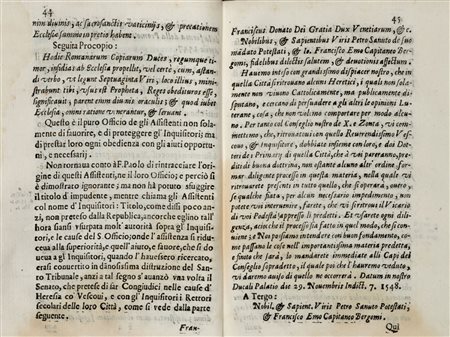 44
non diuinis, ac sacrosanctis vaticinijs, & precationem
Ecclesia samino in pretio habent.
Seguita Procopio:
Hodie Romanorum Copiarum Duces, regumque ti-
mor, subsidia ab Ecclesia propellũt, vel certè, cum, astan-
di verbo, vt legunt Septuaginta Viri, locollius, mini-
strabunt tibi, vsus est Propheta, Reges obedituros esse,
significauit, parent enim diuinis oraculis; & quod iubet
Ecclesia, omni ratione venerantur, & seruant.
Questo è il puro Officio de gli Assistenti non sola-
mente di fauorire, e di proteggere gl' Inquisitori; ma
di prestar loro ogni obedienza con gli aiuti opportu-
ni, e necessarij.
Non tornaua conto à F. Paolo di rintracciare l'ori-
gine di questi Assistenti, ne il loro Officio; e perciò si
è dimostrato ignorante; ma non hà potuto sfuggire
il titolo d'impudente, mentre chiama gli Assistenti
col nome d' Inquisitori: Titolo, come dissi poco an-
zi, non preteso dalla Republica, ancorche eglino tall'
hora sansi vsurpata molt'autorità sopra gl' Inquisito-
ri, le cause del S. Officio; onde l'assistenza si ridu-
cea alla superiorità, e quell'aiuto, e fauore, che si do
uea a gl Inquisitori, quando l'hauessero ricercato,
erasi conuertito in danosissima distruttione del Santo
Tribunale, anzi a tal segno s'auanzò vna volta il
Senato, che pretese di far Congiudici nelle cause d'
Heresia co' Vescoui, e con gl' Inquisitori i Rettori
secolari delle loro Città, come si vede dalla parte
seguente.
Fran-
45
Franciscus Donato Dei Gratia Dux Venetiarum, &c.
Nobilibus, & Sapientibus Viris Petro Sanuto de suo
mãdato Potestati, & Io. Francisco Emo Capitaneo Ber-
gomi, fidelibus dilectis salutem, & deuotionis affectum.
Hauemo inteso con grandissimo dispiacer nostro, che in
quella Città si ritrouano alcuni Heretici, i quali non sola-
mente non viuono Cattolicamente, ma publicamente di-
sputano, e cercano di persuadere a gli altri le opinioni Lu-
terane, cosa, che non volemo comportare per modo alcu-
no. Per tanto col Conseglio nostro de X. e Zonta, vi com-
mettemo, che, ritrouati con quello Reuerendissimo Ves-
couo, & Inquisitore, dobbiate insieme con loro, e doi Dot-
tori de i Primarij di quella Città, che à voi pareranno, pre-
diti de buona dottrina, non ostante alcuno altr' ordine, for-
mar diligente processo in questa materia, nella quale vi
ritrouarete presenti in tutto quello, che si operarà, ouero,
se qualche fiata, per alcun necessario impedimento, non
potete voi interuenire, farete, che vi si ritroui il Vicario
di voi Podestà appresso li predetti. Et vsarete ogni dili-
genza, acioche il processo sia fatto in quel modo, che si con-
uiene; se Noi possiamo intendere con buon fondamento, co-
me passano le cose nell' importantissima materia predetta,
e finito che sarà, lo mandarete immediate alli Capi del
Conseglio sopradetto, il quale poi che l' hauremo veduto,
vi daremo auiso di quello ne occorrerà. Datum in nostro
Ducali Palatio die 29. Nouembris Indict. 7. 1548.
A Tergo:
Nobil. & Sapient. Viris Petro Sanuto Potestati,
& Francisco Emo Capitaneo Bergomi.
Qui